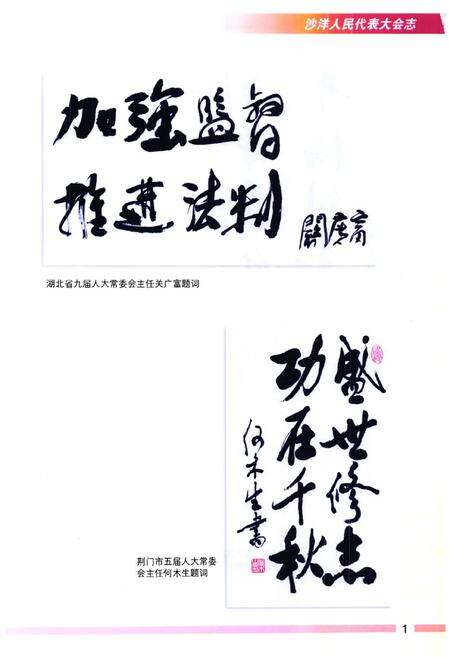 沙洋人民代表大会志
加强监督
推进法制
關廣富
湖北省九届人大常委会主任关广富题词
盛世修志
功在千秋
何木生書
荆门市五届人大常委
会主任何木生题词
1